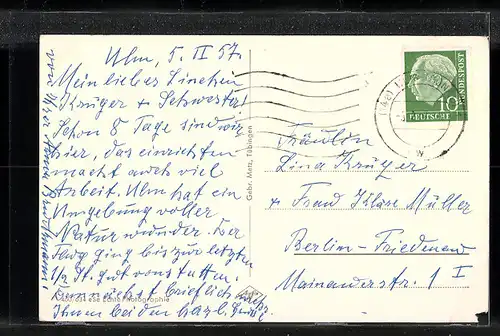 Ulm, 5. II 57.
Mein liebes Linchen
Krüger + Schwester!
Schon 8 Tage sind wir
hier, das einrichten
macht auch viel
Arbeit. Ulm hat ein
Umgebung voller
Natur wunder. Der
Tag ging bis zur letzten
1/2 St. gut vonstatten.
Demnächst brieflich mehr.
Ihnen bei den herzl. Grüße
von Ihrer
Gebr. Metz, Tübingen
eine echte Photographie
10
DEUTSCHE
BUNDESPOST
Fräulein
Lina Krüger
+ Frau Klara Müller
Berlin-Friedenau
Mainauerstr. 1 I